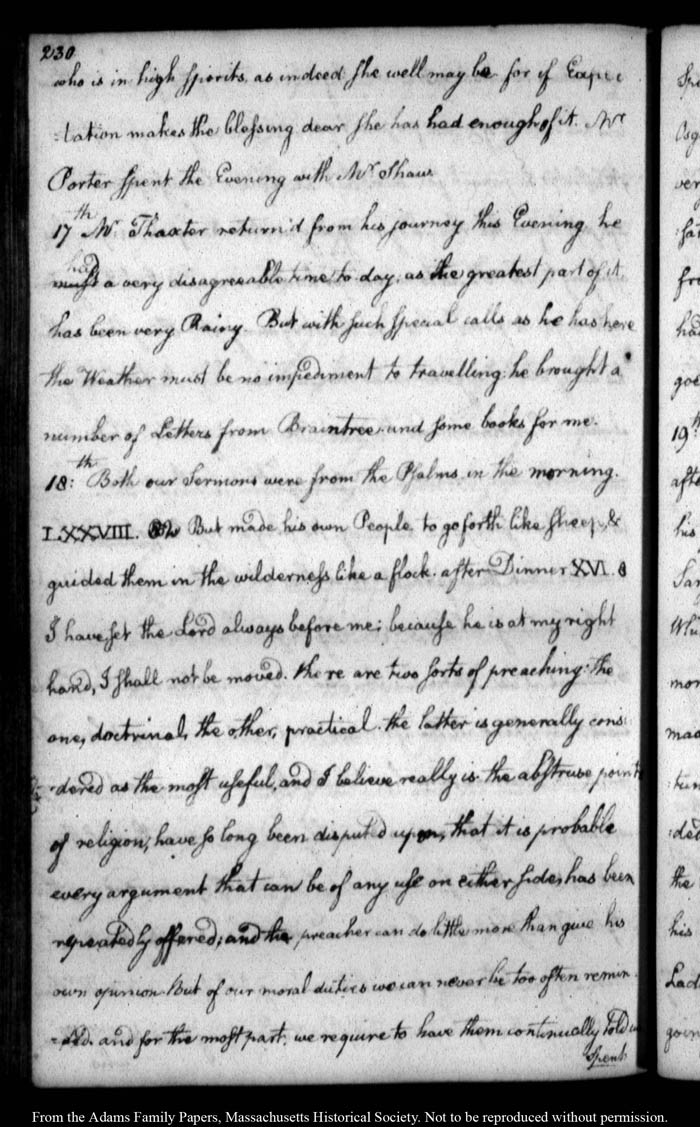 230
who is in high spirits, as indeed she well may be for if Expec
:tation makes the blessing dear she has had enough of it. Mr
Porter spent the Evening with Mr Shaw.
17th Mr. Thaxter return'd from his journey this Evening, he
had
a very disagreeable time to day; as the greatest part of it,
has been very Rainy. But with such special calls as he has here
the Weather must be no impediment to travelling: he brought a
number of Letters from Braintree and some books for me.
18:th Both our Sermons were from the Psalms, in the morning.
LXXVIII. 52 But made his own People to go forth like sheep, &
guided them in the wilderness like a flock. after Dinner XVI. 8
I have set the Lord always before me: because he is at my right
hand, I shall not be moved. there are two sorts of preaching: the
one, doctrinal, the other, practical. the latter is generally consi:
:dered as the most useful, and I believe really is. the abstruse points
of religion, have so long been disputed upon, that it is probable
every argument that can be of any use on either side, has been
repeatedly offered; and the preacher can do little more than give his
own opinion. But of our moral duties we can never be too often remin
:ded. and for the most part, we require to have them continually told us
Spent
Spe
19th
afte
his
mor
mad
:ded
the
his
Lad
From the Adams Family Papers, Massachusetts Historical Society. Not to be reproduced without permission.